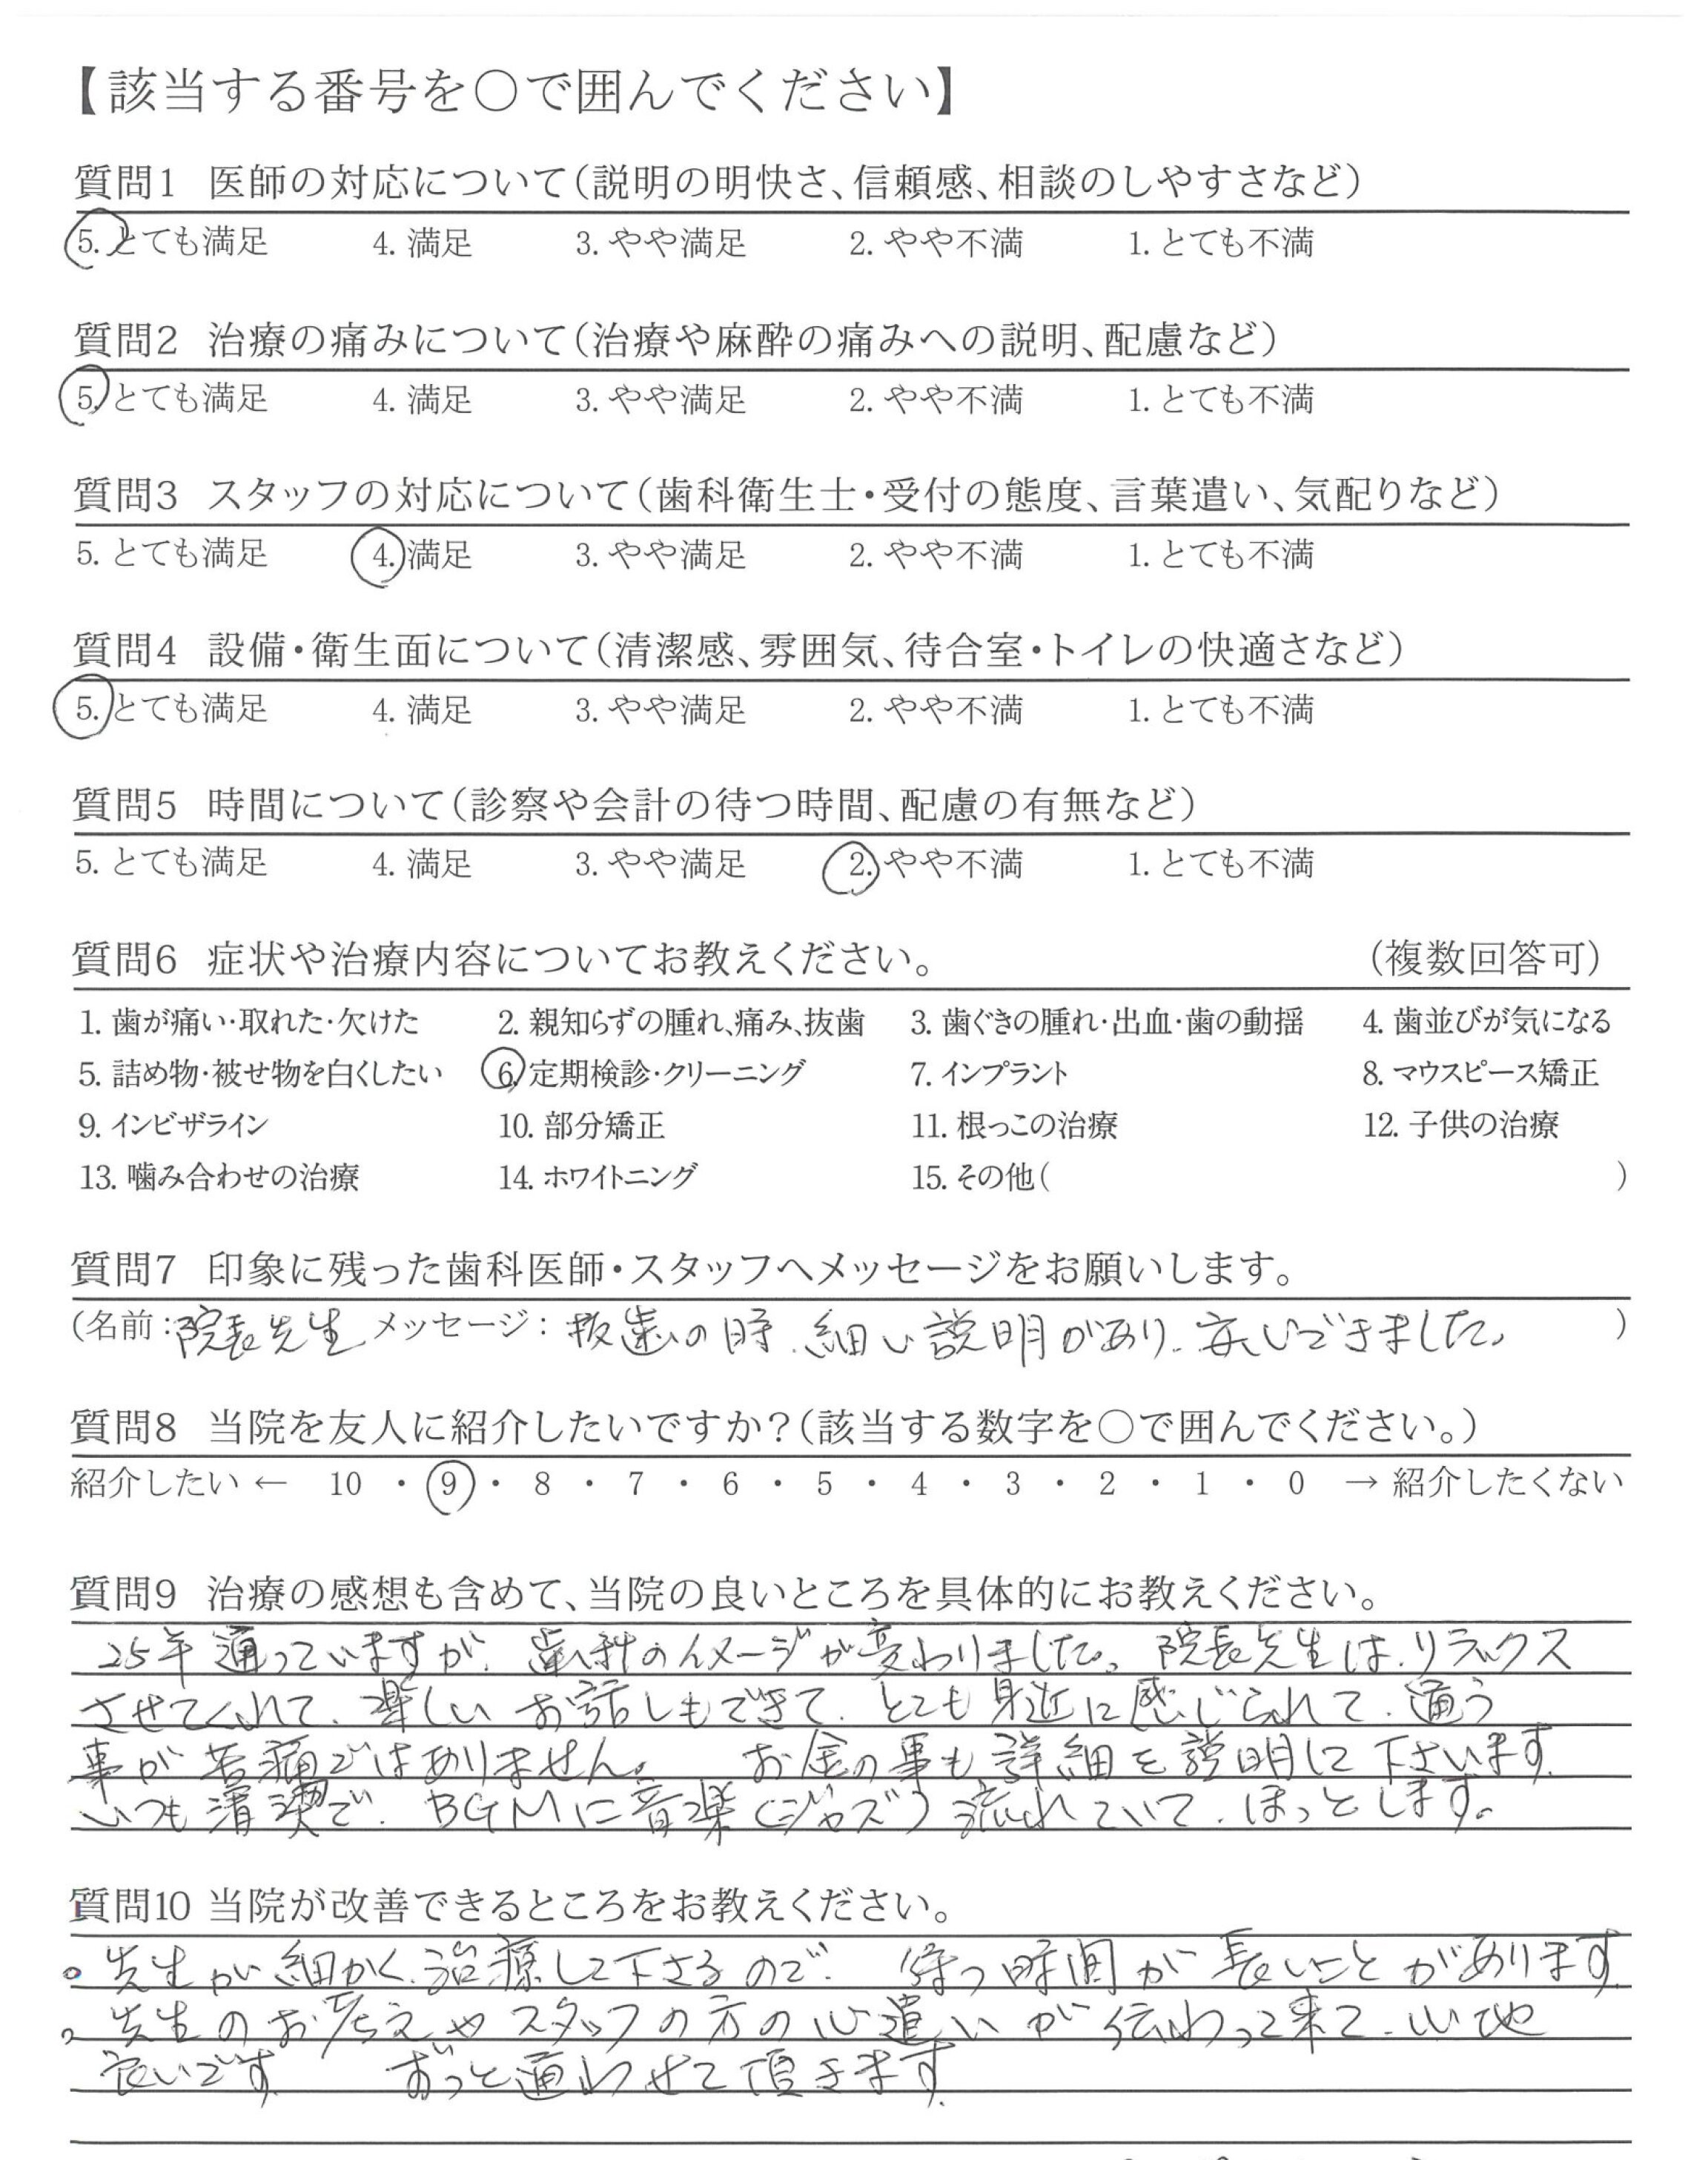 【該当する番号を○で囲んでください】
質問1 医師の対応について(説明の明快さ、信頼感、相談のしやすさなど)
5. とても満足 4. 満足 3. やや満足 2. やや不満 1. とても不満
質問2 治療の痛みについて(治療や麻酔の痛みへの説明、配慮など)
5. とても満足 4. 満足 3. やや満足 2. やや不満 1. とても不満
質問3 スタッフの対応について(歯科衛生士・受付の態度、言葉遣い、気配りなど)
5. とても満足 4. 満足 3. やや満足 2. やや不満 1. とても不満
質問4 設備・衛生面について(清潔感、雰囲気、待合室・トイレの快適さなど)
5. とても満足 4. 満足 3. やや満足 2. やや不満 1. とても不満
質問5 時間について(診察や会計の待つ時間、配慮の有無など)
5. とても満足 4. 満足 3. やや満足 2. やや不満 1. とても不満
質問6 症状や治療内容についてお教えください。 (複数回答可)
1. 歯が痛い・取れた・欠けた 2. 親知らずの腫れ、痛み、抜歯 3. 歯ぐきの腫れ・出血・歯の動揺 4. 歯並びが気になる
5. 詰め物・被せ物を白くしたい 6. 定期検診・クリーニング 7. インプラント 8. マウスピース矯正
9. インビザライン 10. 部分矯正 11. 根っこの治療 12. 子供の治療
13. 噛み合わせの治療 14. ホワイトニング 15. その他( )
質問7 印象に残った歯科医師・スタッフへメッセージをお願いします。
(名前:院長先生 メッセージ: 抜歯の時、細い説明があり、安心できました。 )
質問8 当院を友人に紹介したいですか?(該当する数字を○で囲んでください。)
紹介したい ← 10 ・ 9 ・ 8 ・ 7 ・ 6 ・ 5 ・ 4 ・ 3 ・ 2 ・ 1 ・ 0 → 紹介したくない
質問9 治療の感想も含めて、当院の良いところを具体的にお教えください。
25年通っていますが、歯科のイメージが変わりました。院長先生は、リラックス
させてくれて、楽しいお話しもできて、とても身近に感じられて、通う
事が苦痛ではありません。 お金の事も詳細を説明して下さいます。
いつも清潔で、BGMに音楽(ジャズ)流れていて、ほっとします。
質問10 当院が改善できるところをお教えください。
。先生が細かく、治療して下さるので、待つ時間が長いことがあります。
。先生のお考えやスタッフの方の心遣いが伝わって来て、心地
良いです。 ずっと通わせて頂きます。